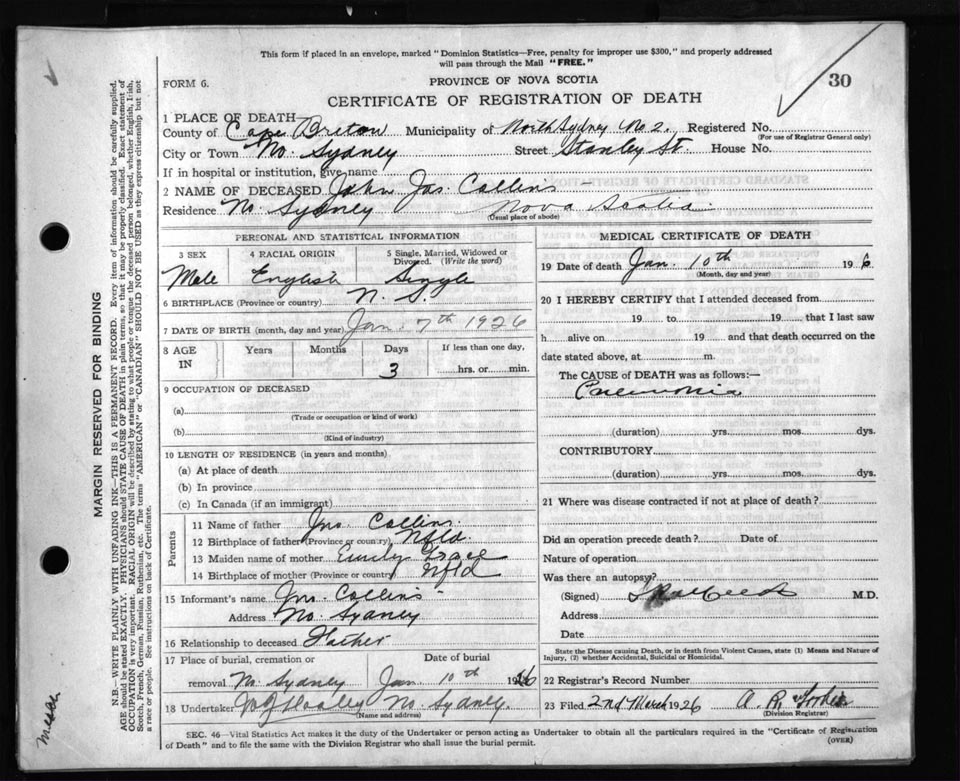 This form if placed in an envelope, marked "Dominion Statistics—Free, penalty for improper use $300," and properly addressed
will pass through the Mail "FREE."
FORM 6. PROVINCE OF NOVA SCOTIA 30
CERTIFICATE OF REGISTRATION OF DEATH
1 PLACE OF DEATH
County of Cape Breton Municipality of North Sydney No 2. Registered No.
(For use of Registrar General only)
City or Town No. Sydney Street Stanley St. House No.
If in hospital or institution, give name
2 NAME OF DECEASED John Jas Collins
Residence No. Sydney Nova Scotia
(Usual place of abode)
PERSONAL AND STATISTICAL INFORMATION
3 SEX 4 RACIAL ORIGIN 5 Single, Married, Widowed or
Divorced. (Write the word)
Male English Single
6 BIRTHPLACE (Province or country) N. S.
7 DATE OF BIRTH (month, day and year) Jan. 7th 1926
8 AGE Years Months Days If less than one day,
IN 3 hrs. or min.
9 OCCUPATION OF DECEASED
(a)
(Trade or occupation or kind of work)
(b)
(Kind of industry)
10 LENGTH OF RESIDENCE (in years and months)
(a) At place of death
(b) In province
(c) In Canada (if an immigrant)
Parents
11 Name of father Jno. Collins
12 Birthplace of father (Province or country) Nfld
13 Maiden name of mother Emily
14 Birthplace of mother (Province or country) Nfld
15 Informant's name Jno. Collins
Address No. Sydney
16 Relationship to deceased Father
17 Place of burial, cremation or Date of burial
removal N. Sydney Jan 10th 1926
18 Undertaker No. Sydney.
(Name and address)
MEDICAL CERTIFICATE OF DEATH
19 Date of death Jan. 10th 1926
(Month, day and year)
20 I HEREBY CERTIFY that I attended deceased from
19 to 19 that I last saw
h alive on 19 and that death occurred on the
date stated above, at m.
The CAUSE of DEATH was as follows:—
Pneumonia
(duration) yrs. mos. dys.
CONTRIBUTORY
(duration) yrs. mos. dys.
21 Where was disease contracted if not at place of death?
Did an operation precede death? Date of
Nature of operation
Was there an autopsy?
(Signed) M.D.
Address
Date
State the Disease causing Death, or in death from Violent Causes, state (1) Means and Nature of
Injury, (2) whether Accidental, Suicidal or Homicidal.
22 Registrar's Record Number
23 Filed 2nd March 1926 A. R.
(Division Registrar)
SEC. 46—Vital Statistics Act makes it the duty of the Undertaker or person acting as Undertaker to obtain all the particulars required in the "Certificate of Registration
of Death" and to file the same with the Division Registrar who shall issue the burial permit. (OVER)
MARGIN RESERVED FOR BINDING
N.B.—WRITE PLAINLY WITH UNFADING INK—THIS IS A PERMANENT RECORD. Every item of information should be carefully supplied.
AGE should be stated EXACTLY. PHYSICIANS should STATE CAUSE OF DEATH in plain terms, so that it may be properly classified. Exact statement of
OCCUPATION is very important. RACIAL ORIGIN will be described by stating to what people or tongue the deceased person belonged, whether English, Irish,
Scotch, French, German, Russian, Ruthenian, etc. The terms "AMERICAN" or "CANADIAN" SHOULD NOT BE USED as they express citizenship but not
a race or people. See instructions on back of Certificate.